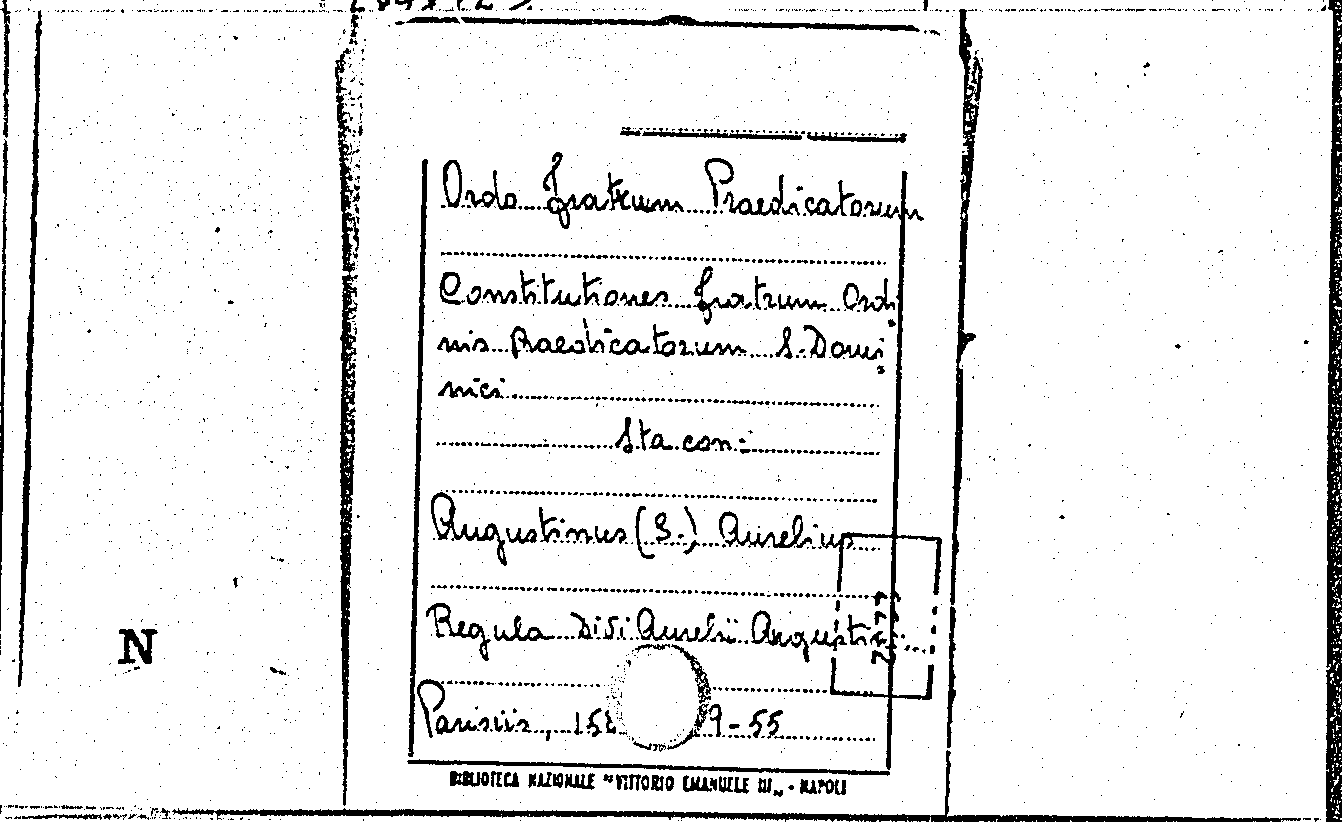 Ordo Fratrum Praedicatorum
Constitutiones fratrum Ordi
nis Praedicatorum S. Domi
nici
Sta con:
Augustinus (S.) Aurelius
Regula Divi Aurelii Augusti
N
Parisiis, 158 9-55
BIBLIOTECA NAZIONALE "VITTORIO EMANUELE III" - NAPOLI